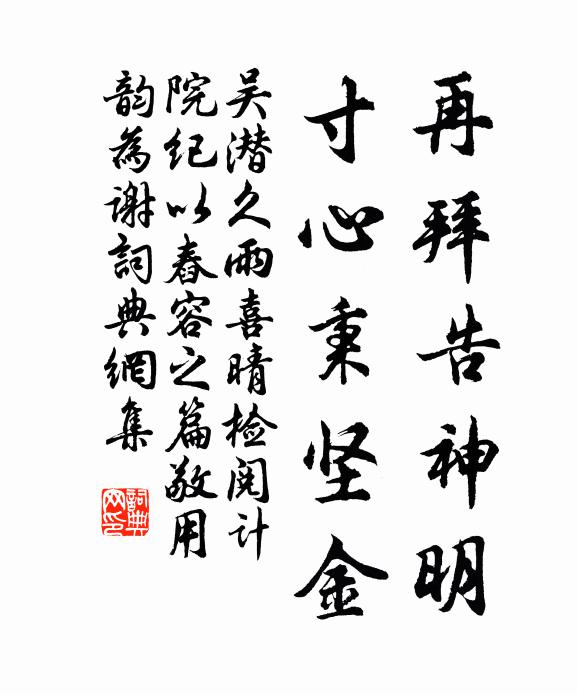 再拜告神明
寸心秉坚金
吴潜久雨喜晴检阅计
院纪以春容之篇敬用
韵为谢词典網集
詞典网印